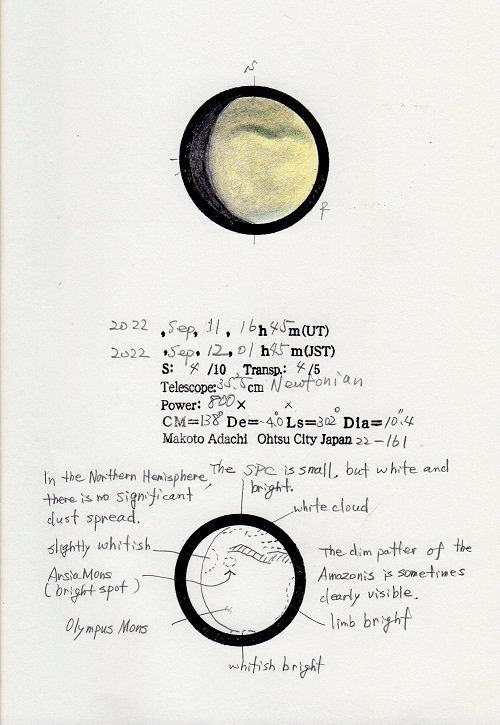 S
P
2022 , Sep, 11, 16h45m(UT)
2022 , Sep, 12, 01h45m(JST)
S: 4 /10 Transp.: 4/5
Telescope: 35.5cm Newtonian
Power: 800× ×
CM=138° De=-4.0° Ls=302° Dia=10".4
Makoto Adachi Ohtsu City Japan 22-161
In the Northern Hemisphere,
there is no significant
dust spread.
The SPC is small, but white and
bright.
white cloud
slightly whitish
Arsia Mons
(bright spot)
Olympus Mons
The dim patter of the
Amazonis is sometimes
clearly visible.
limb bright
whitish bright